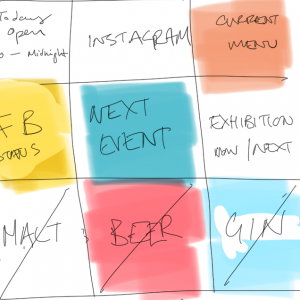 Today
Open
– Midnight
INSTAGRAM
CURRENT
MENU
FB
STATUS
NEXT
EVENT
EXHIBITION
NOW / NEXT
MALT
BEER
GIN